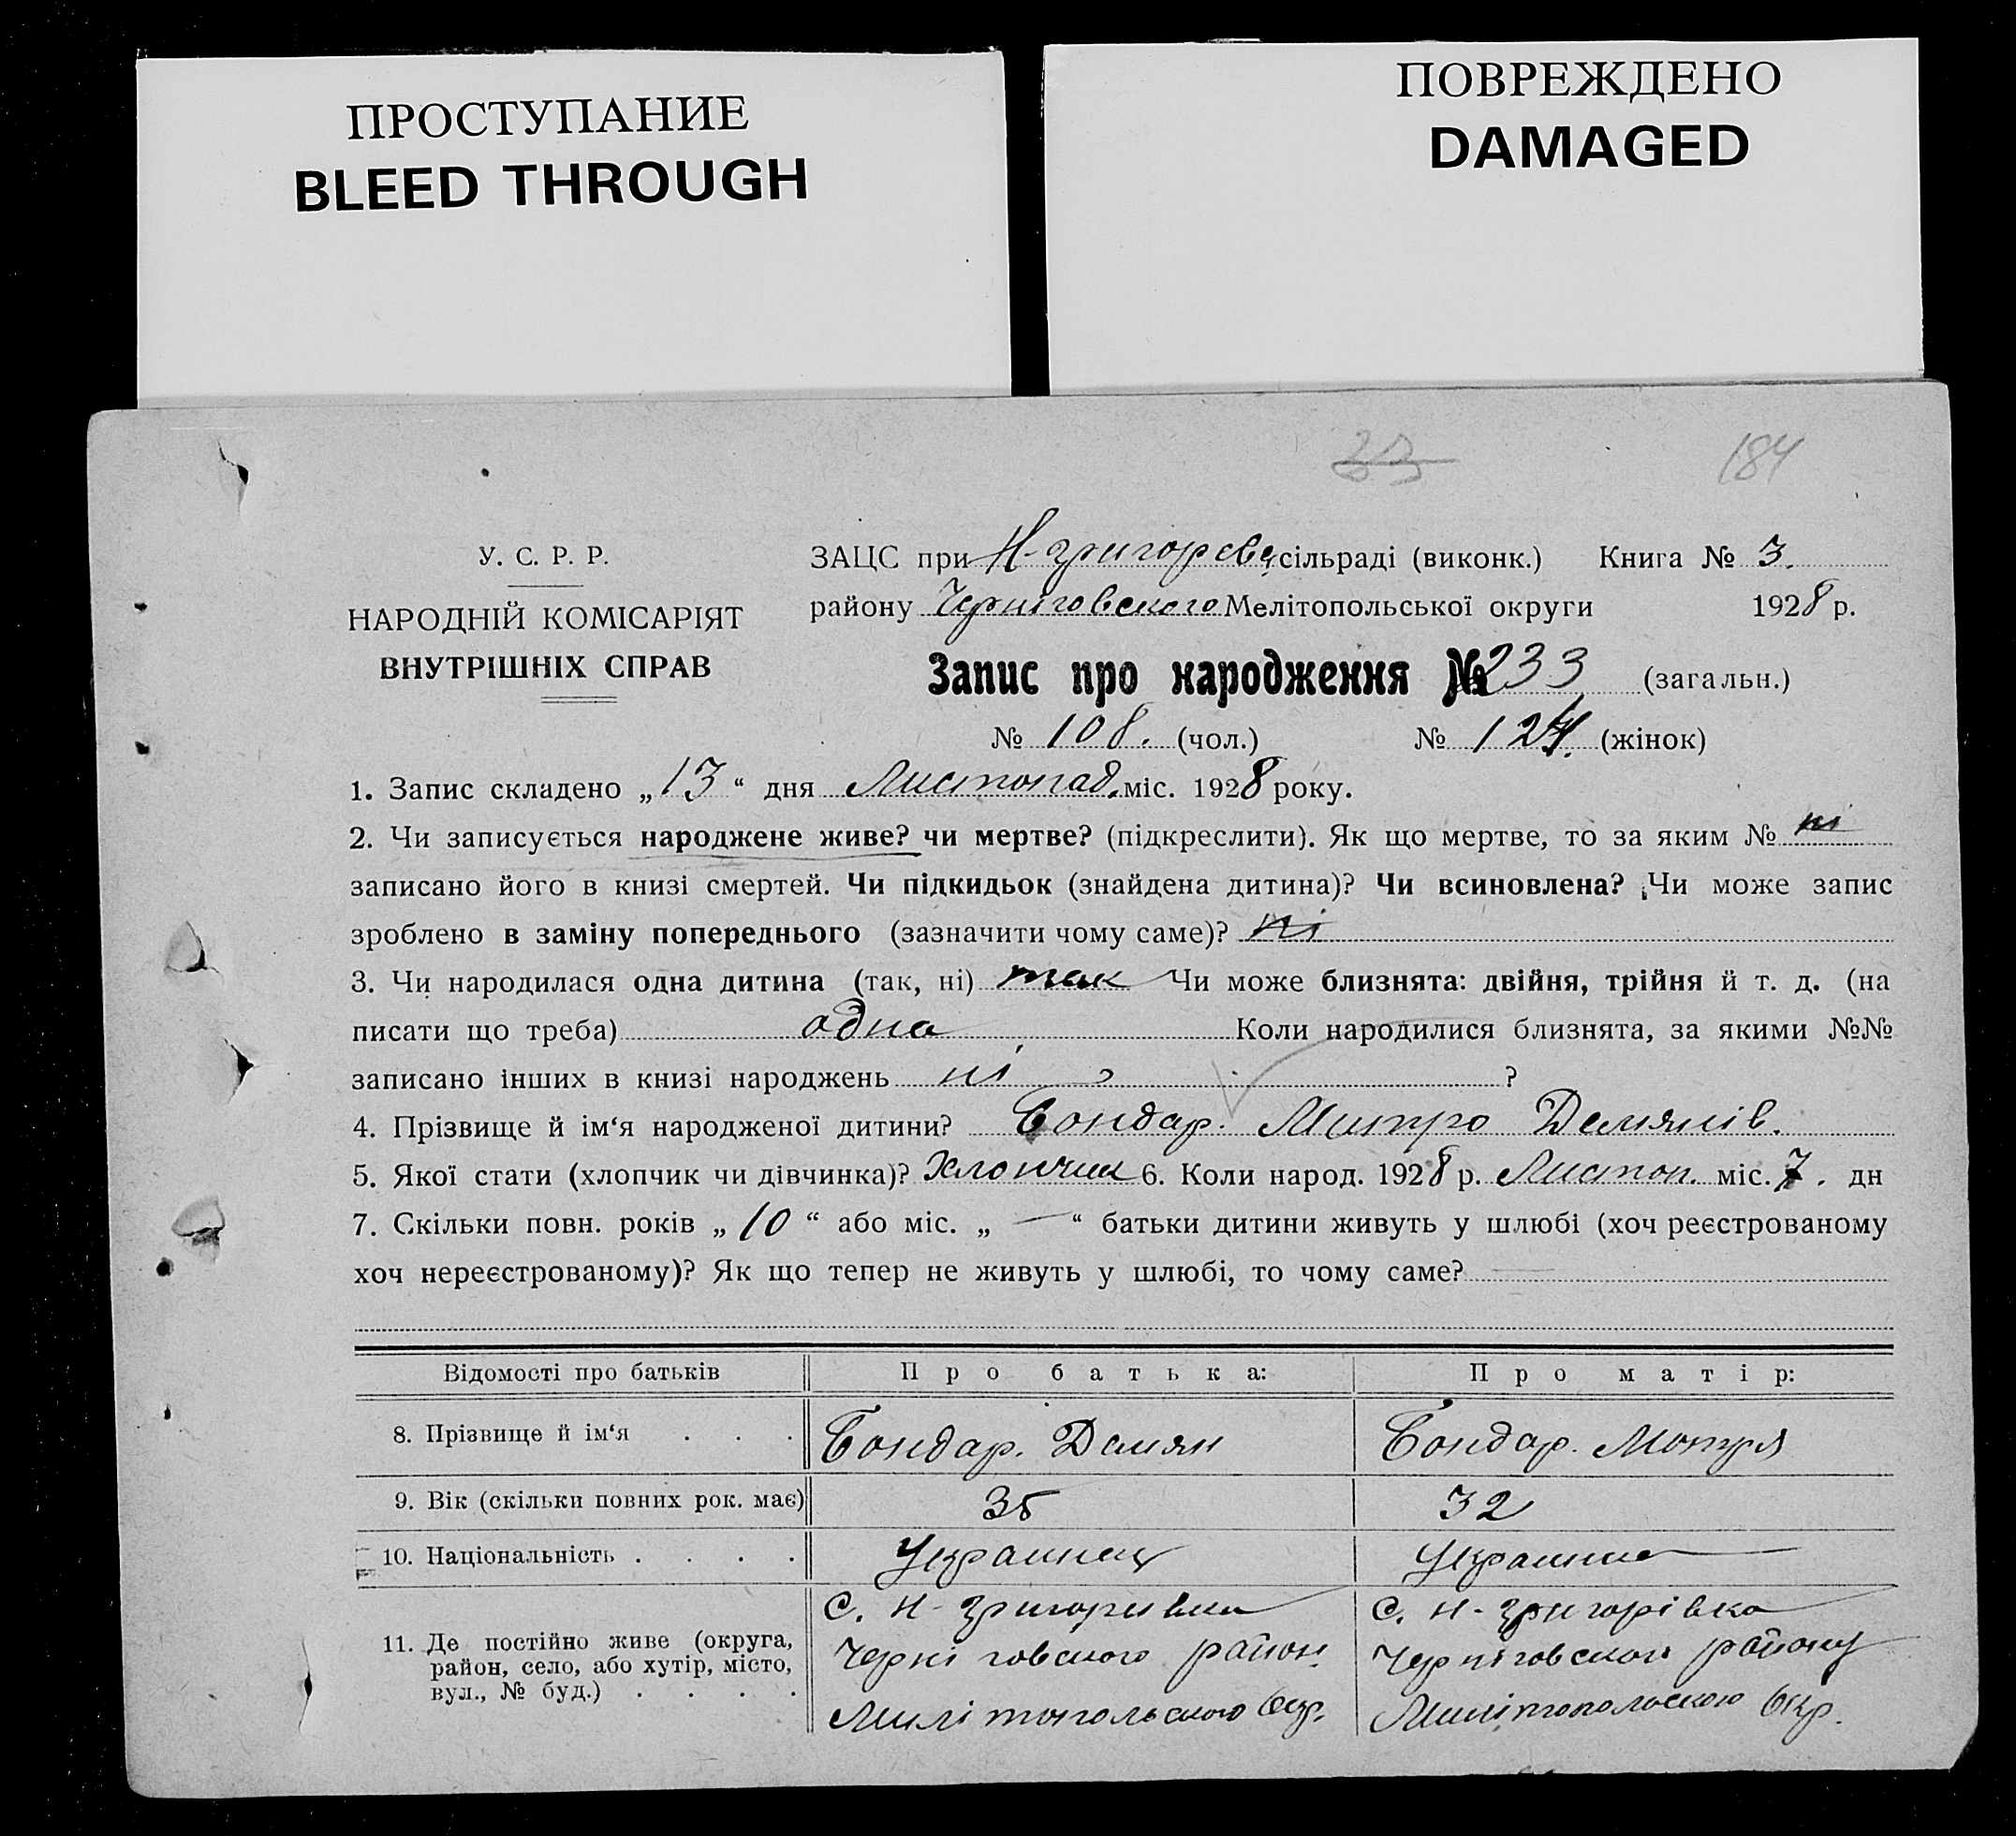 ПРОСТУПАНИЕ
BLEED THROUGH
ПОВРЕЖДЕНО
DAMAGED
33
184
У. С. Р. Р.
НАРОДНІЙ КОМІСАРІЯТ
ВНУТРІШНІХ СПРАВ
ЗАЦС при Н-Григорєвс. сільраді (виконк.) Книга № 3.
району Черніговского Мелітопольської округи 1928 р.
Запис про народження № 233 (загальн.)
№ 108. (чол.) № 124. (жінок)
1. Запис складено „13“ дня Листопад. міс. 1928 року.
2. Чи записується народжене живе? чи мертве? (підкреслити). Як що мертве, то за яким № ні
записано його в книзі смертей. Чи підкидьок (знайдена дитина)? Чи всиновлена? Чи може запис
зроблено в заміну попереднього (зазначити чому саме)? ні
3. Чи народилася одна дитина (так, ні) так Чи може близнята: двійня, трійня й т. д. (на
писати що треба) одна Коли народилися близнята, за якими №№
записано інших в книзі народжень ні ?
4. Прізвище й ім‘я народженої дитини? Бондар. Митро Демянів.
5. Якої стати (хлопчик чи дівчинка)? Хлопчик 6. Коли народ. 1928 р. Листоп. міс. 7. дн
7. Скільки повн. років „10“ або міс. „—“ батьки дитини живуть у шлюбі (хоч реєстрованому
хоч нереєстрованому)? Як що тепер не живуть у шлюбі, то чому саме? —
Відомості про батьків Про батька: Про матір:
8. Прізвище й ім‘я . . . Бондар. Демян Бондар. Мотря
9. Вік (скільки повних рок. має) 35 32
10. Національність . . . . Украинец Украинка
11. Де постійно живе (округа, район, село, або хутір, місто, вул., № буд.) . . . .
С. Н-Григоривка
Черніговского район.
Милітопольского Окр.
С. Н-Григорівка
Черніговского району
Милітопольского Окр.